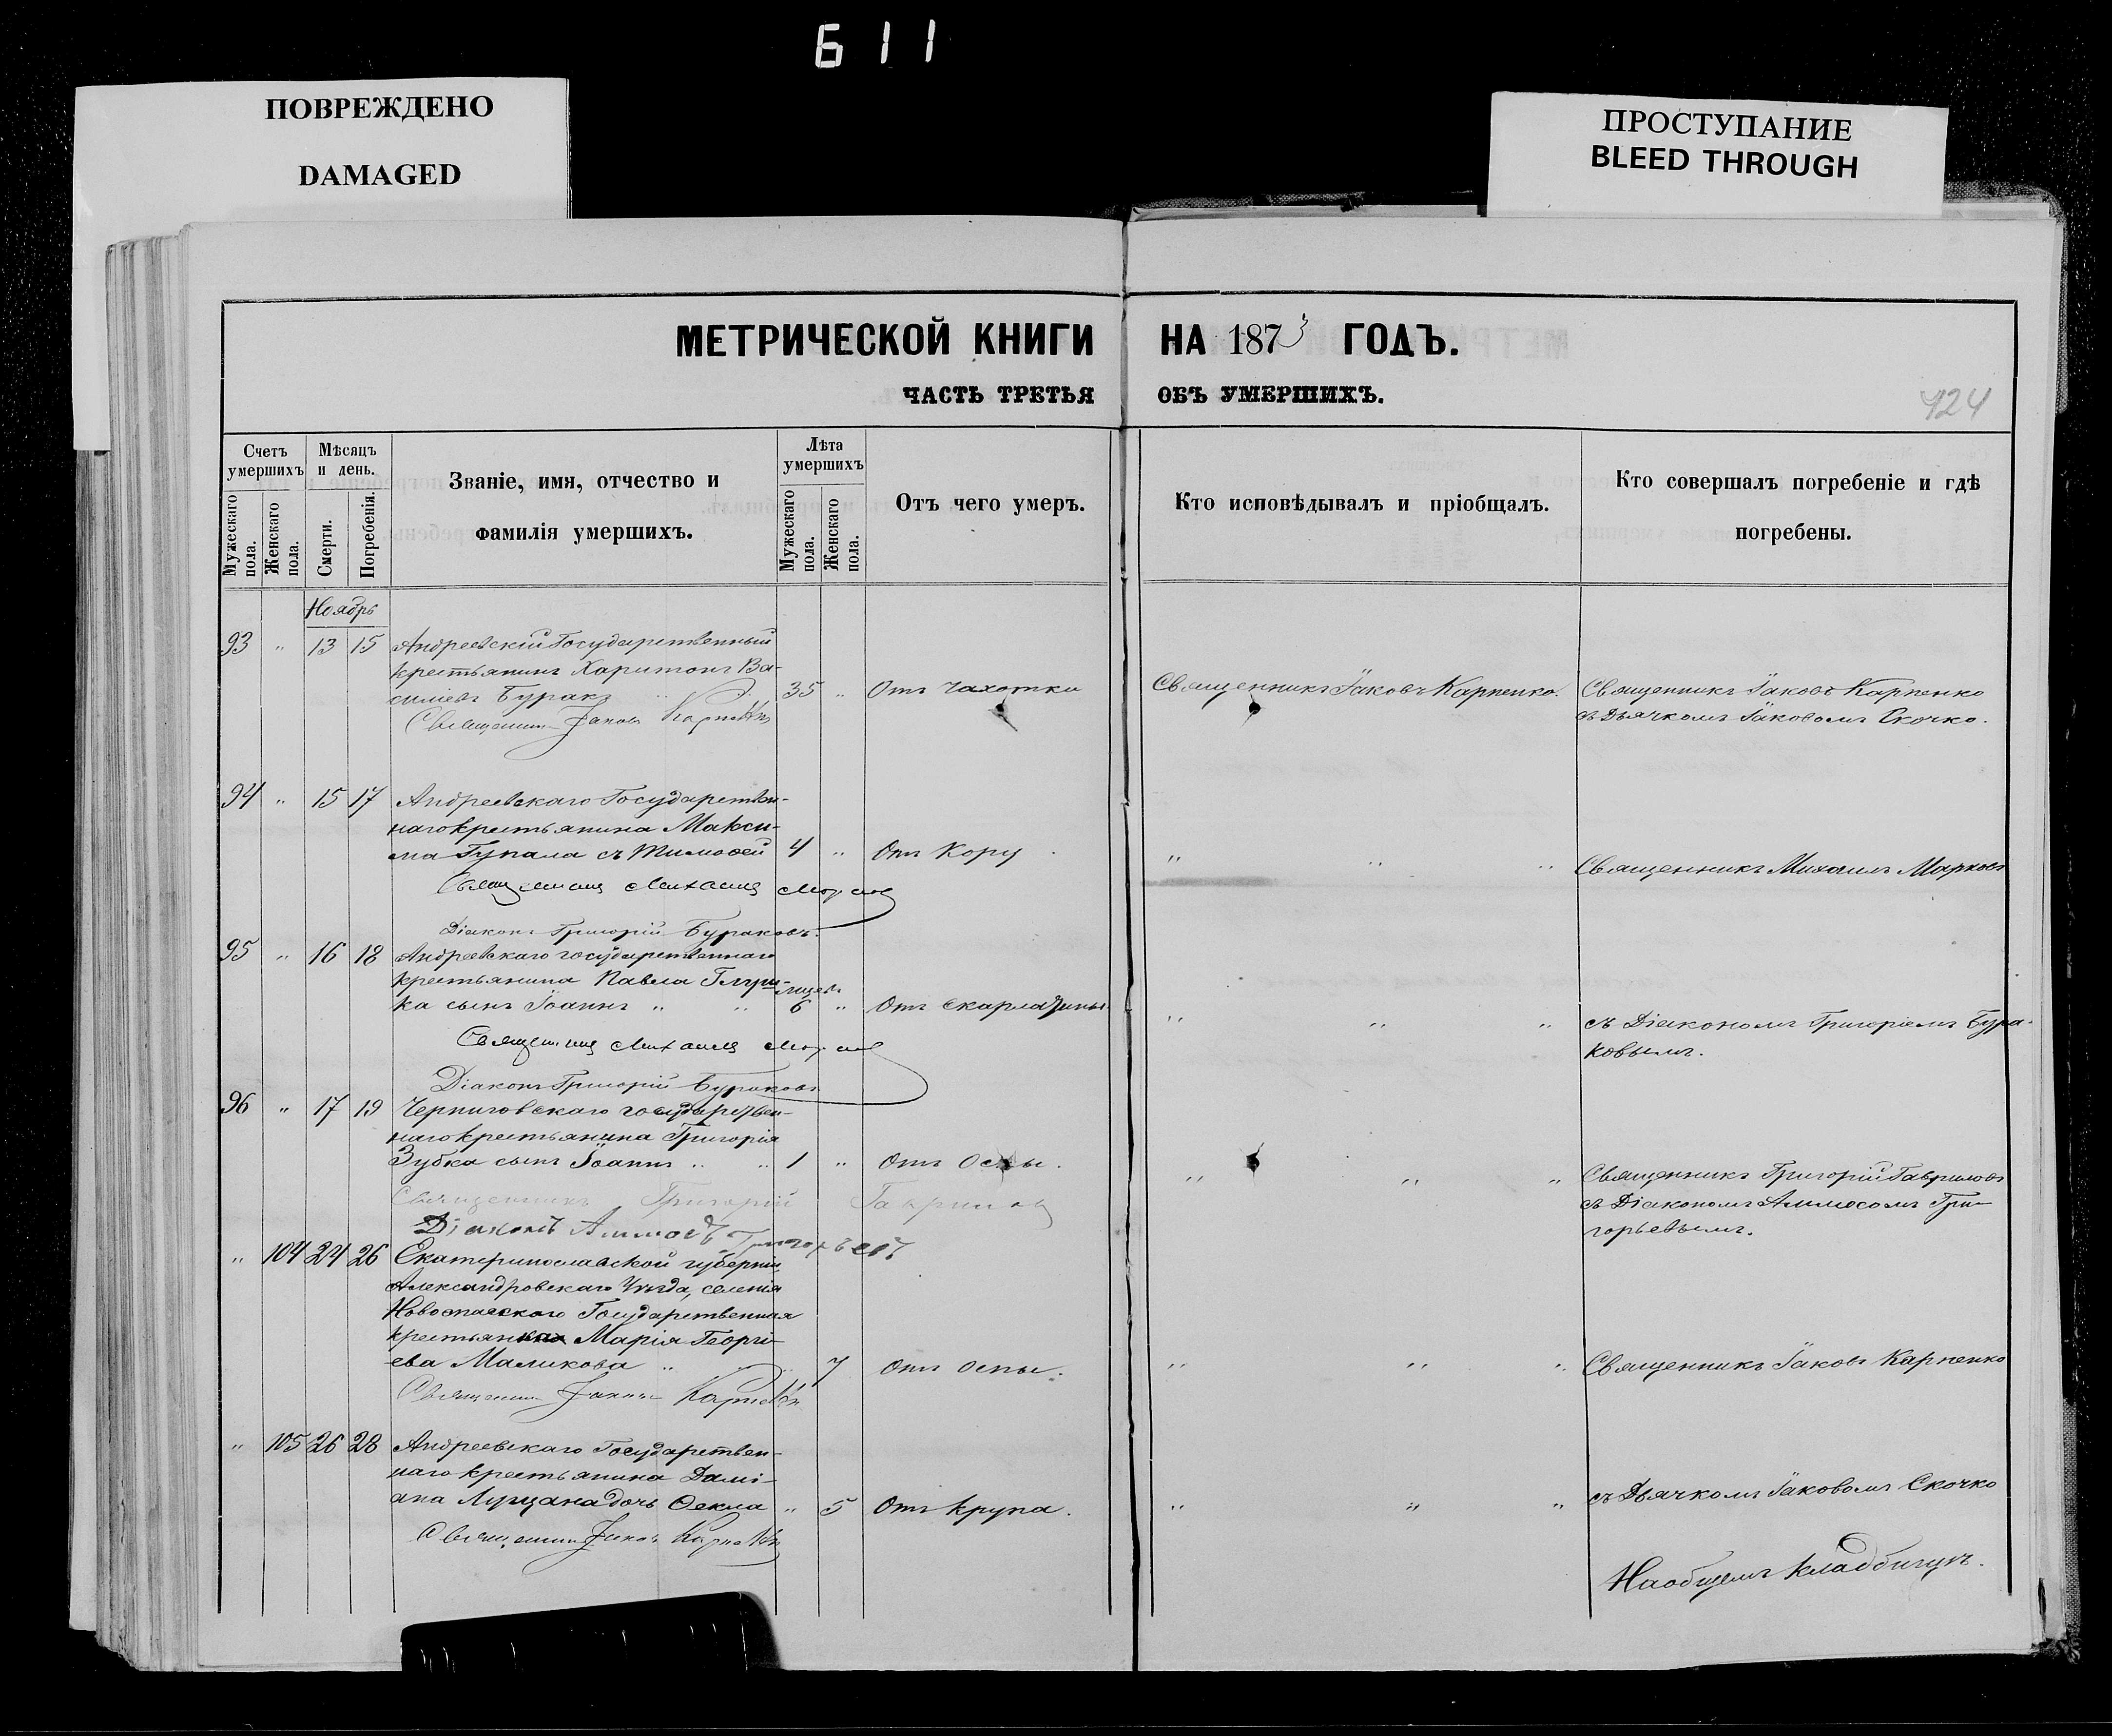 611
ПОВРЕЖДЕНО
DAMAGED
ПРОСТУПАНИЕ
BLEED THROUGH
МЕТРИЧЕСКОЙ КНИГИ НА 1873 ГОДЪ.
ЧАСТЬ ТРЕТЬЯ ОБЪ УМЕРШИХЪ.
424
Счетъ умершихъ
Мужескаго пола.
Женскаго пола.
Мѣсяцъ и день.
Смерти.
Погребенія.
Званіе, имя, отчество и
фамилія умершихъ.
Лѣта умершихъ
Мужескаго пола.
Женскаго пола.
Отъ чего умеръ.
Кто исповѣдывалъ и пріобщалъ.
Кто совершалъ погребеніе и гдѣ
погребены.
Ноябрь
93 " 13 15 Андреевскій Государственный
крестьянинъ Харитонъ Ва-
силіевъ Буракъ " 35 " Отъ чахотки Священникъ Іаковъ Карпенко. Священникъ Іаковъ Карпенко
съ Дьячкомъ Іаковомъ Скочко.
Священникъ Іаковъ Карпенко
94 " 15 17 Андреевскаго Государствен-
наго крестьянина Макси-
ма Гупала съ Тимофей 4 " Отъ Кору " " " Священникъ Михаилъ Марковъ
Священникъ Михаилъ Марковъ
Діаконъ Григорій Бураковъ.
95 " 16 18 Андреевскаго государственнаго
крестьянина Павла Глущ-
ка сынъ Іоаннъ " " 6 " Отъ Скарлатины " " " съ Діакономъ Григоріемъ Бура-
ковымъ.
Священникъ Михаилъ Марковъ
Діаконъ Григорій Бураковъ
96 " 17 19 Черниговскаго государствен-
наго крестьянина Григорія
Зубка сынъ Іоаннъ " " 1 " Отъ Оспы. " " " Священникъ Григорій Гавриловъ
съ Діакономъ Аммосомъ Гри-
горьевымъ.
Священникъ Григорій Гавриловъ
Діаконъ Аммосъ Григорьевъ
" 104 24 26 Екатеринославской губерніи,
Александровскаго Уѣзда, селенія
Новоспаскаго Государственная
крестьянка Марія Георгі-
ева Маликова " " 7 Отъ оспы. " " " Священникъ Іаковъ Карпенко
Священникъ Іаковъ Карпенко
" 105 26 28 Андреевскаго Государствен-
наго крестьянина Дамі-
ана Луцана дочь Ѳекла " 5 Отъ крупа. " " " съ Дьячкомъ Іаковомъ Скочко
Священникъ Іаковъ Карпенко
На общемъ кладбищѣ.